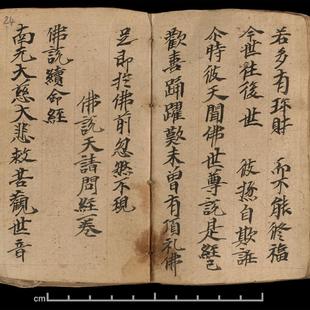 若多有珎財 而不能修福
今世往後世 彼惣自欺誑
尒時彼天聞佛世尊說是經已
歡喜踊躍歎未曾有頂礼佛
足即於佛前忽然不現
佛說天請問經一卷
佛說續命經
南无大慈大悲救苦觀世音
24
cm